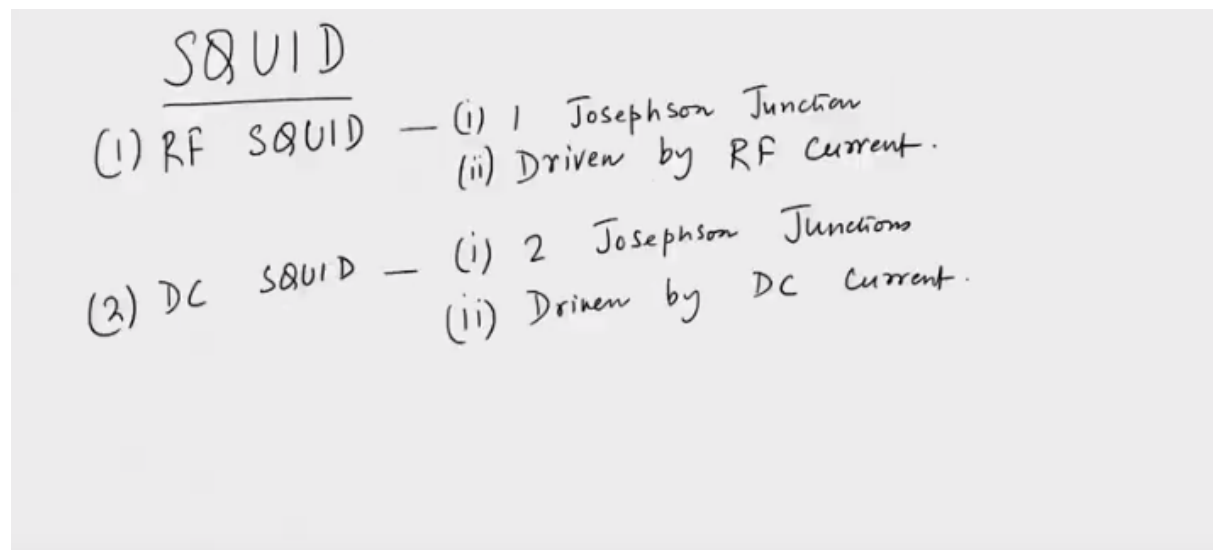 SQUID
(1) RF SQUID — (i) 1 Josephson Junction
(ii) Driven by RF Current.
(2) DC SQUID — (i) 2 Josephson Junctions
(ii) Driven by DC Current.